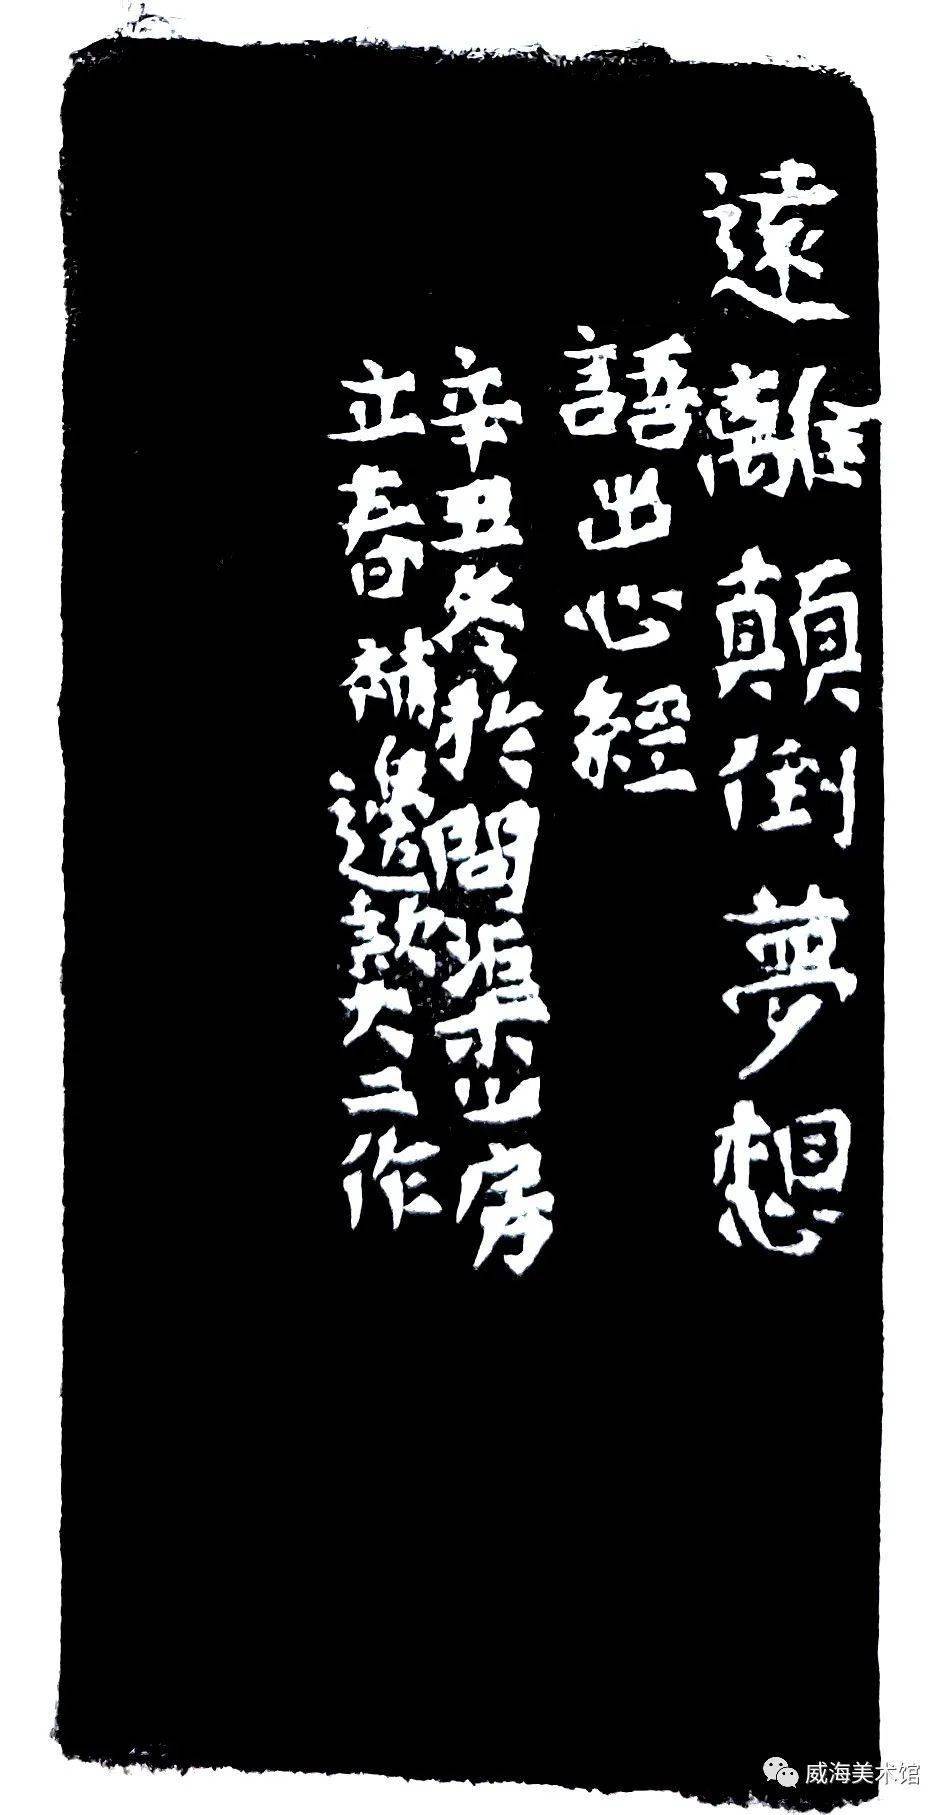 遠離顛倒夢想
語出心經
辛丑冬於問渠山房
立春補邊款大二作
威海美术馆